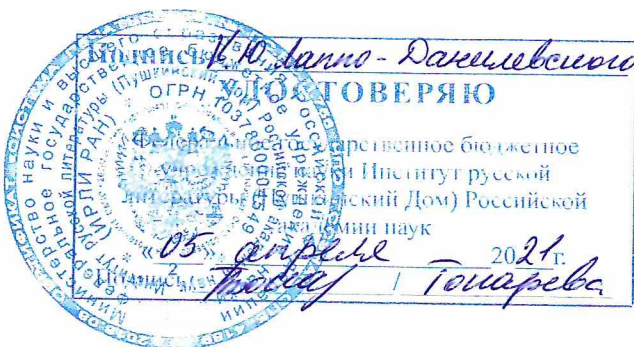 Подпись К.Ю. Лаппо-Данилевского
УДОСТОВЕРЯЮ
Федеральное государственное бюджетное
учреждение науки Институт русской
литературы (Пушкинский Дом) Российской
академии наук
«05» апреля 2021г.
Подпись / Гонарева
Министерство науки и высшего образования Российской Федерации
Федеральное государственное бюджетное учреждение науки Институт
русской литературы (Пушкинский Дом) Российской академии наук
(ИРЛИ РАН)
ОГРН
2